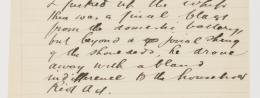 & picked up the whip
there was a final blast
from the domestic battery,
but beyond a jovial shrug
of the shoulders, he drove
away with a bland
indifference to the household
Riot Act.